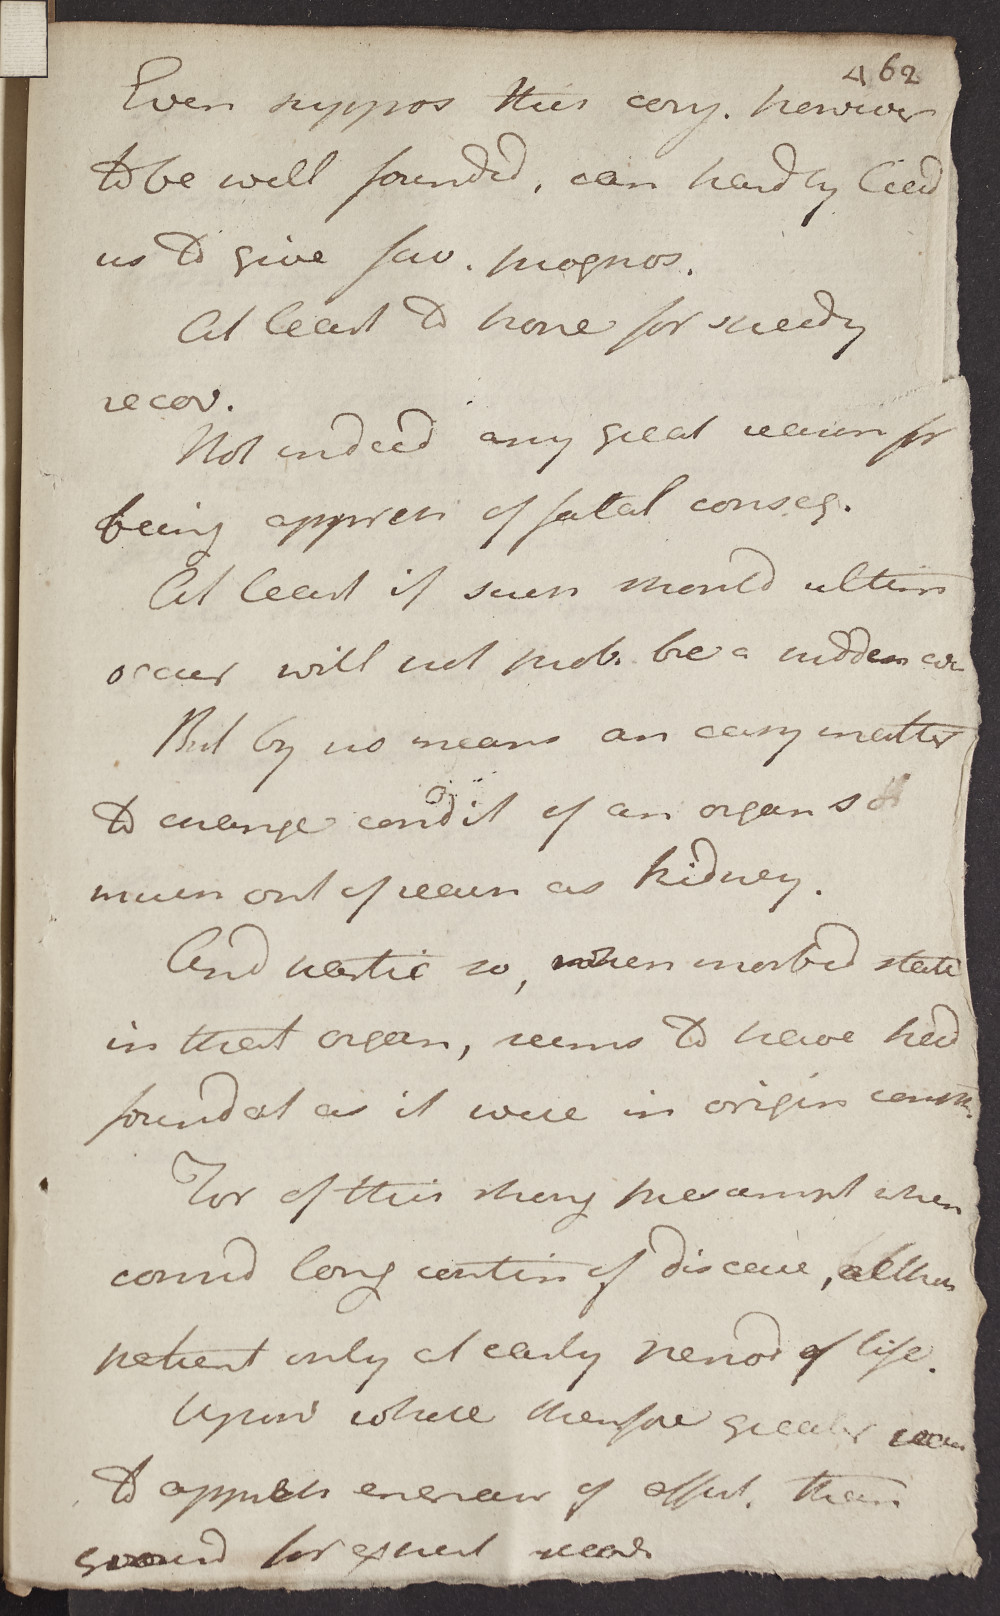 462
Even suppos this conj. however
to be well founded, can hardly lead
us to give fav. prognos.
At least to hope for speedy
recov.
Not indeed any great reason for
being appreh of fatal conseq.
At least if such should ultim
occur will not prob. be a sudden
But by no means an easy matter
to change condit of an organ so
much out of reach as kidney.
And partic so, when morbid state
in that organ, seems to have had
foundat as it were in origin
For of this strong presumpt when
consid long contin of disease, altho
patient only at early period of life.
Upon whole therefore greater reas
to appreh increase of affect. than
ground for expect